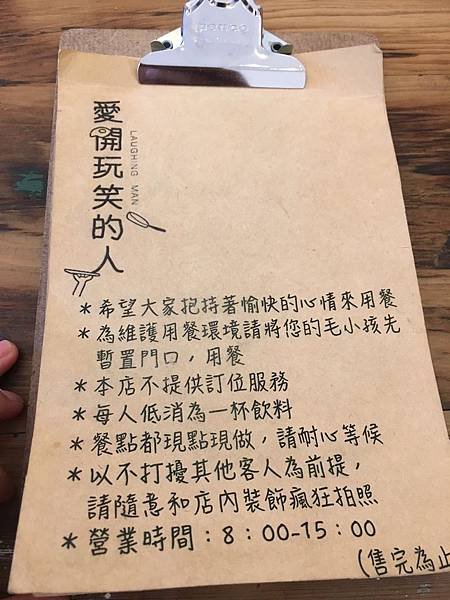 penco
愛開玩笑的人
LAUGHING MAN
＊希望大家抱持著愉快的心情來用餐
＊為維護用餐環境請將您的毛小孩先
暫置門口，用餐
＊本店不提供訂位服務
＊每人低消為一杯飲料
＊餐點都現點現做，請耐心等候
＊以不打擾其他客人為前提，
請隨意和店內裝飾瘋狂拍照
＊營業時間：8：00-15：00
(售完為止